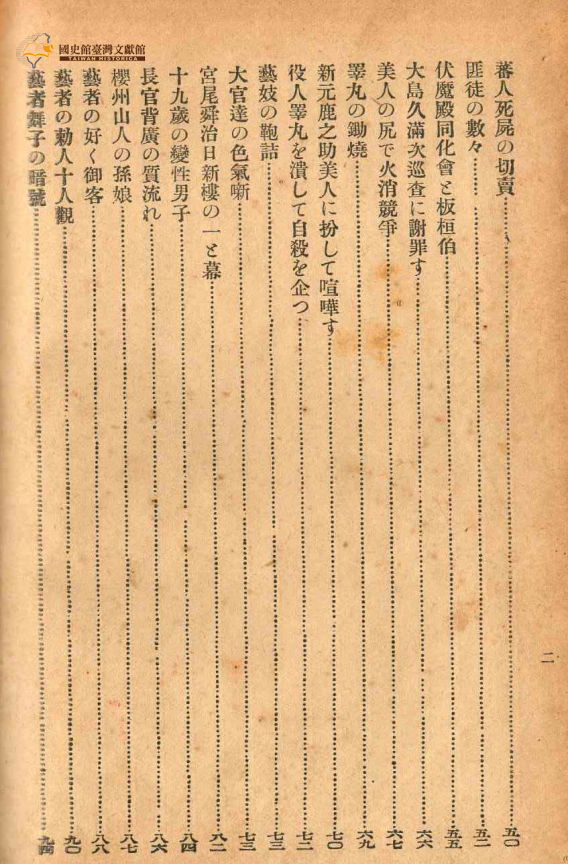 國史館臺灣文獻館
TAIWAN HISTORICA
二
蕃人死屍の切賣…五〇
匪徒の數々…五二
伏魔殿同化會と板垣伯…五五
大島久滿次巡査に謝罪す…六六
美人の尻で火消競爭…六七
睾丸の鋤燒…六九
新元鹿之助美人に扮して喧嘩す…七〇
役人睾丸を潰して自殺を企つ…七二
藝妓の鞄詰…七三
大官達の色氣噺…七三
宮尾舜治日新樓の一と幕…八二
十九歲の變性男子…八四
長官背廣の質流れ…八六
櫻州山人の孫娘…八七
藝者の好く御客…八八
藝者の勅人十人觀…九〇
藝者舞子の暗號…九四